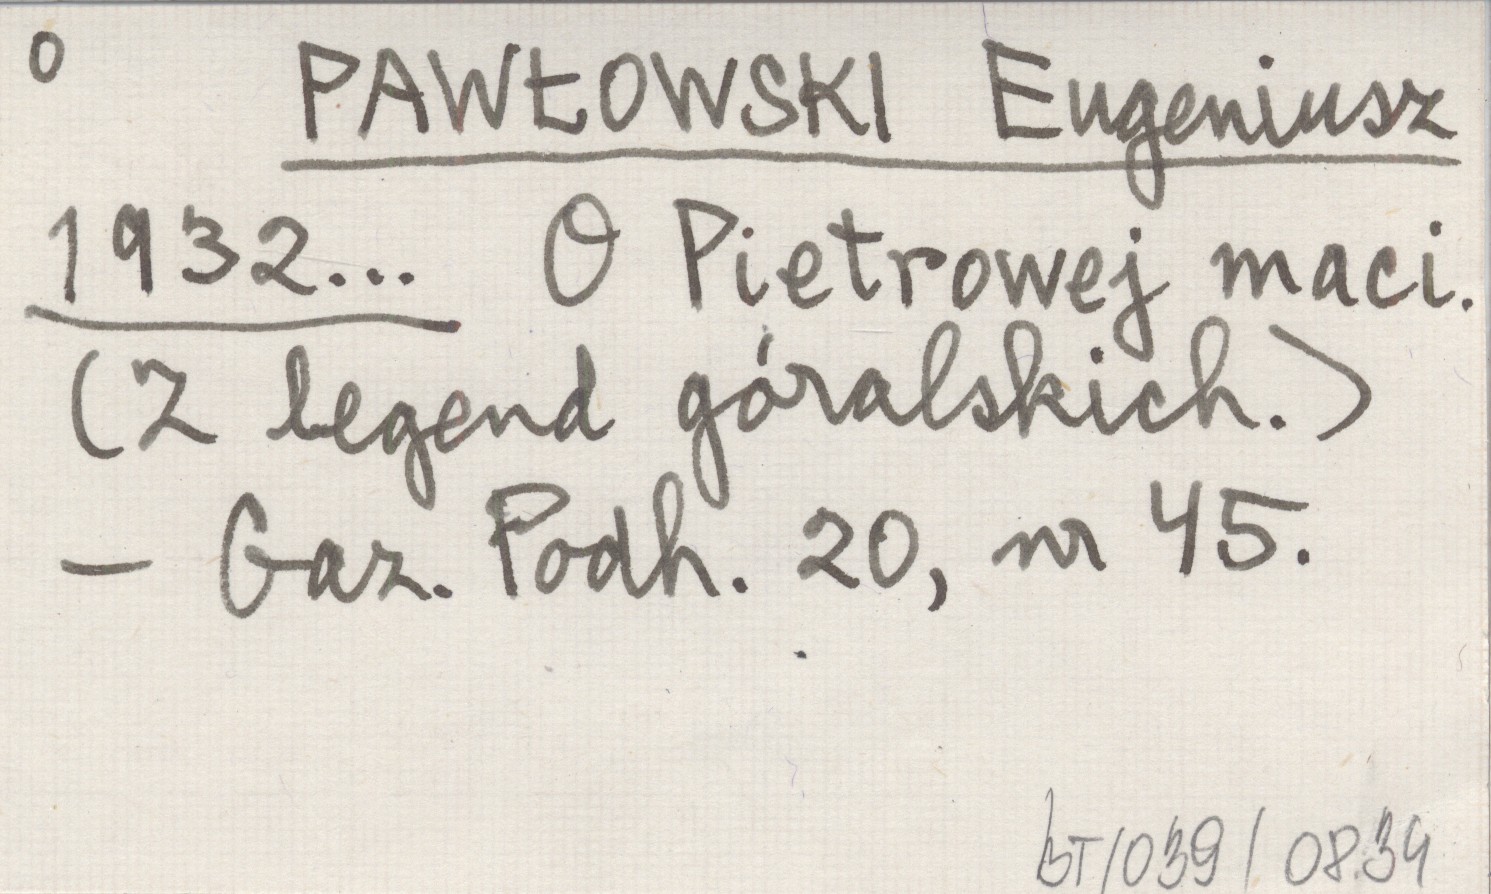 O PAWŁOWSKI Eugeniusz
1932... O Pietrowej maci.
(Z legend góralskich.)
– Gaz. Podh. 20, nr 45.
BT/039/0834